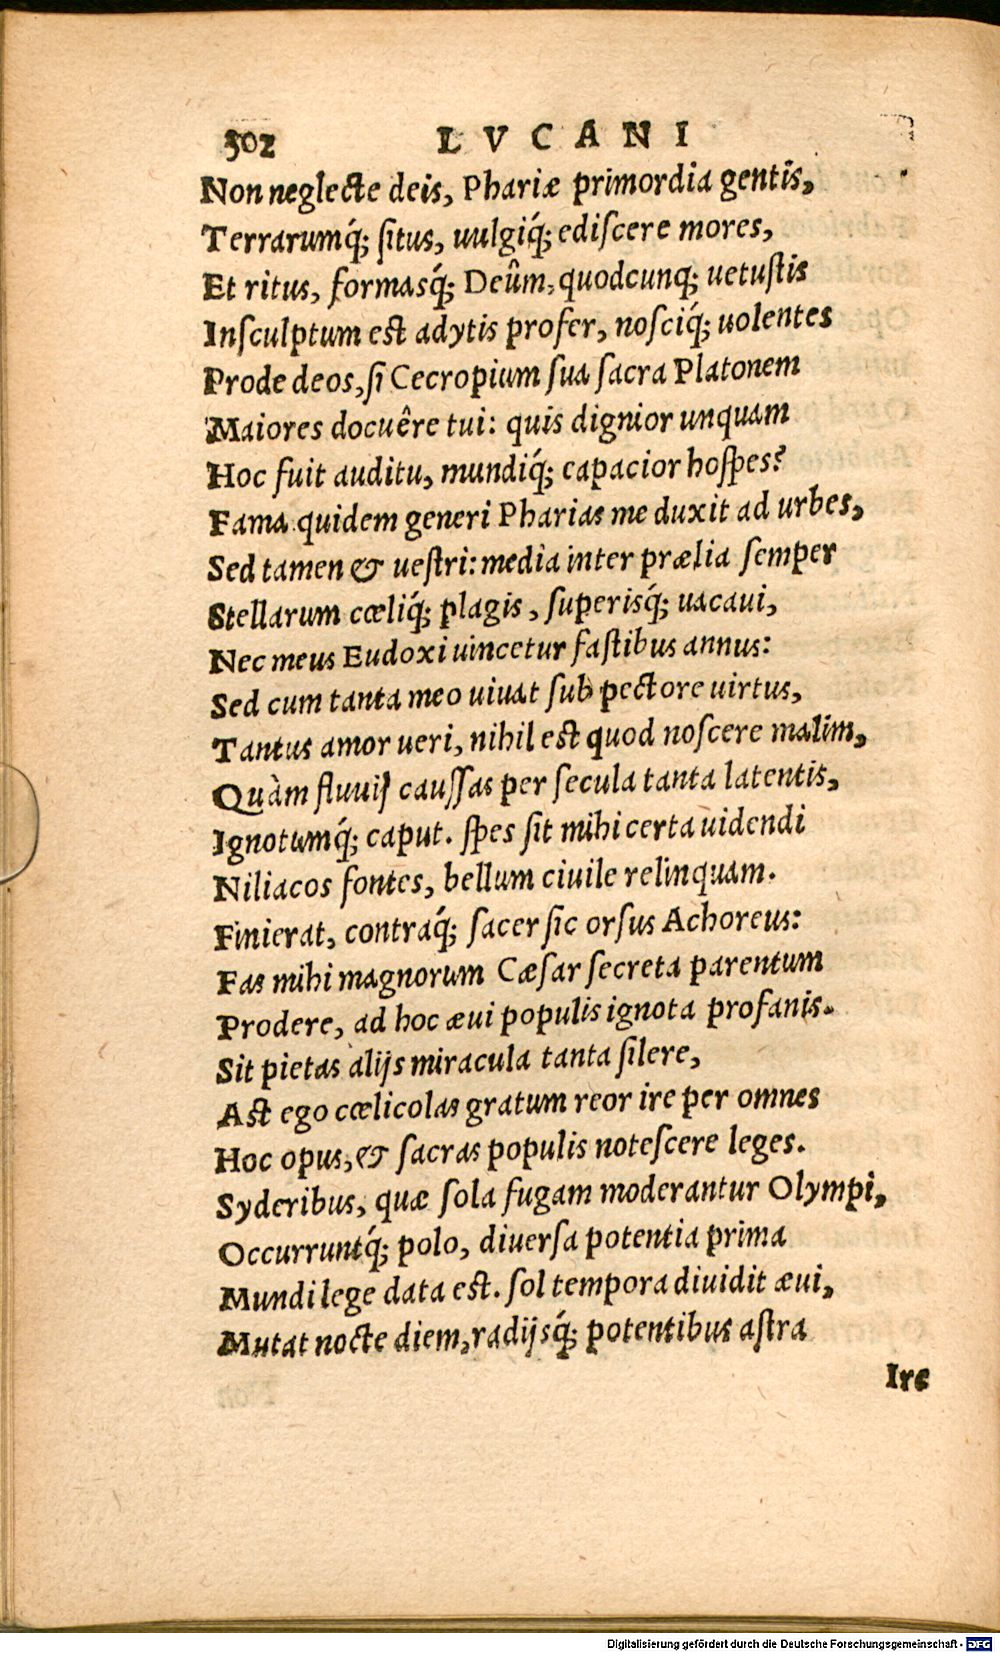 302 LVCANI
Non neglecte deis, Phariæ primordia gentis,
Terrarumq́; ſitus, uulgiq́; ediſcere mores,
Et ritus, formasq́; Deûm, quodcunq; uetuſtis
Inſculptum est adytis profer, noſciq́; uolentes
Prode deos, ſi Cecropium ſua ſacra Platonem
Maiores docuêre tui: quis dignior unquam
Hoc fuit auditu, mundiq́; capacior hoſpes?
Fama quidem generi Pharias me duxit ad urbes,
Sed tamen & ueſtri: media inter prælia ſemper
Stellarum cœliq́; plagis, ſuperisq́; uacaui,
Nec meus Eudoxi uincetur faſtibus annus:
Sed cum tanta meo uiuat ſub pectore uirtus,
Tantus amor ueri, nihil est quod noſcere malim,
Quàm fluuij cauſſas per ſecula tanta latentis,
Ignotumq́; caput. ſpes ſit mihi certa uidendi
Niliacos fontes, bellum ciuile relinquam.
Finierat, contraq́; ſacer ſic orſus Achoreus:
Fas mihi magnorum Cæſar ſecreta parentum
Prodere, ad hoc æui populis ignota profanis.
Sit pietas alijs miracula tanta ſilere,
Ast ego cœlicolas gratum reor ire per omnes
Hoc opus, & ſacras populis noteſcere leges.
Syderibus, quæ ſola fugam moderantur Olympi,
Occurruntq́; polo, diuerſa potentia prima
Mundi lege data est. ſol tempora diuidit æui,
Mutat nocte diem, radijsq́; potentibus aſtra
Ire
Digitalisierung gefördert durch die Deutsche Forschungsgemeinschaft - DFG